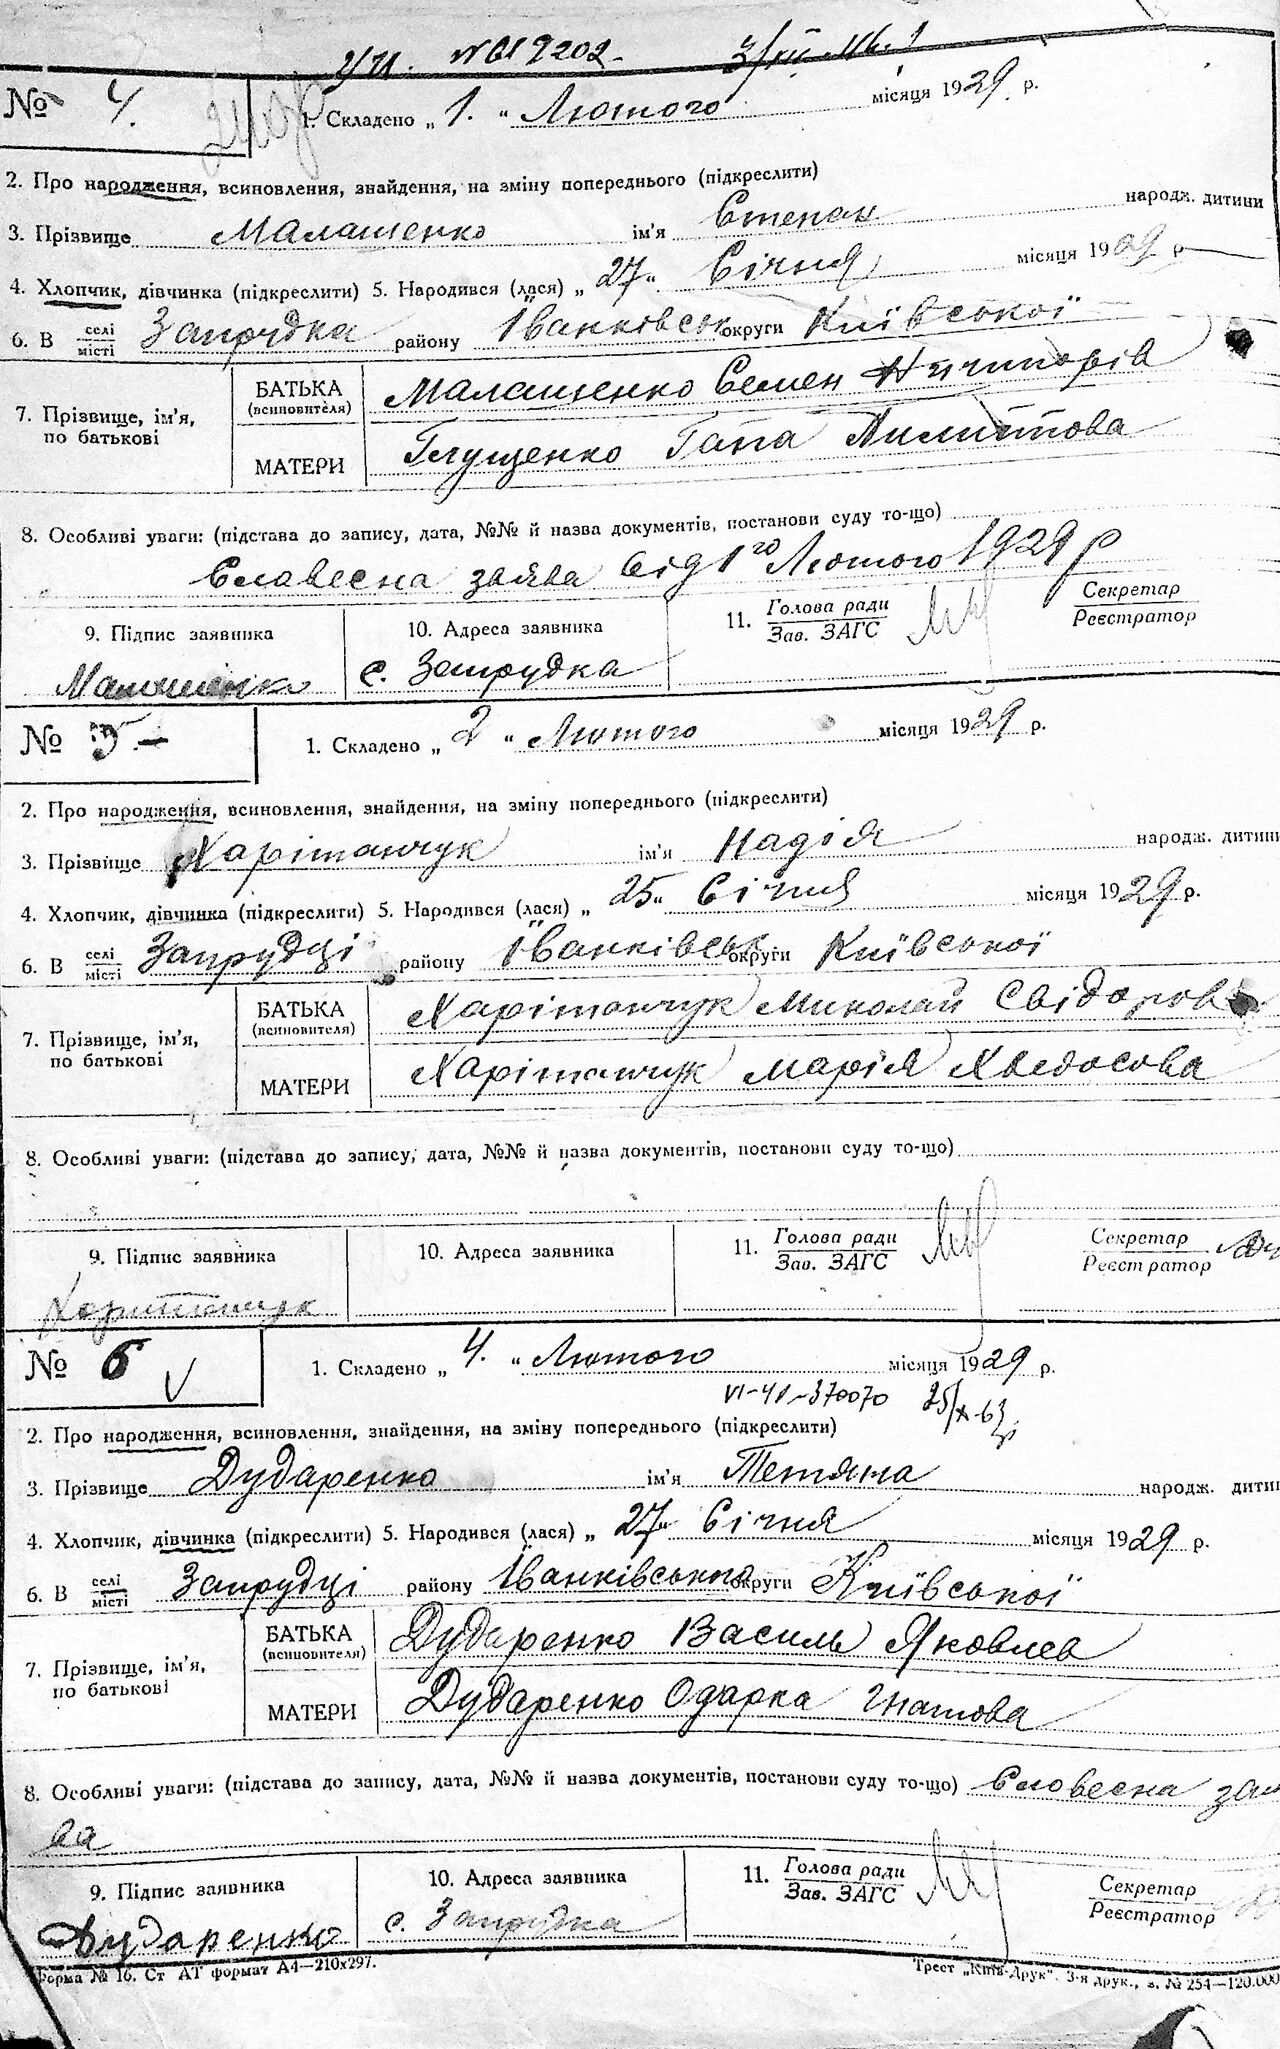 № 4.
1. Складено „ 1. “ Лютого місяця 1929. р.
2. Про народження, всиновлення, знайдення, на зміну попереднього (підкреслити)
3. Прізвище Малашенко ім'я Степан народж. дитини
4. Хлопчик, дівчинка (підкреслити) 5. Народився (лася) „ 27 “ Січня місяця 1929 р
6. В селі/місті Запрудка району Іванковськ округи Київської
7. Прізвище, ім'я, по батькові
БАТЬКА (всиновителя) Малашенко Семен Ничипорів
МАТЕРИ Глущенко Гапа Пилиптова
8. Особливі уваги: (підстава до запису, дата, №№ й назва документів, постанови суду то-що)
Славесна заява від 1го Лютого 1929 р
9. Підпис заявника
10. Адреса заявника
11. Голова ради / Зав. ЗАГС
Секретар / Реєстратор
Малашенко с. Запрудка
№ 5 –
1. Складено „ 2 “ Лютого місяця 1929 р.
2. Про народження, всиновлення, знайдення, на зміну попереднього (підкреслити)
3. Прізвище Харітанчук ім'я Надія народж. дитини
4. Хлопчик, дівчинка (підкреслити) 5. Народився (лася) „ 25 “ Січня місяця 1929 р.
6. В селі/місті Запрудці району Іванківськ округи Київської
7. Прізвище, ім'я, по батькові
БАТЬКА (всиновителя) Харітанчук Миколай Свідоров
МАТЕРИ Харітанчук Марія Хведосова
8. Особливі уваги: (підстава до запису, дата, №№ й назва документів, постанови суду то-що)
9. Підпис заявника
10. Адреса заявника
11. Голова ради / Зав. ЗАГС
Секретар / Реєстратор
Хаританчук
№ 6
1. Складено „ 4. “ Лютого місяця 1929 р.
VI-41-370070 25/X-63
2. Про народження, всиновлення, знайдення, на зміну попереднього (підкреслити)
3. Прізвище Дударенко ім'я Тетяна народж. дитин
4. Хлопчик, дівчинка (підкреслити) 5. Народився (лася) „ 27 “ Січня місяця 1929 р.
6. В селі/місті Запрудці району Іванківського округи Київської
7. Прізвище, ім'я, по батькові
БАТЬКА (всиновителя) Дударенко Василь Яковлев
МАТЕРИ Дударенко Одарка Гнатова
8. Особливі уваги: (підстава до запису, дата, №№ й назва документів, постанови суду то-що) Словесна зая
ва
9. Підпис заявника
10. Адреса заявника
11. Голова ради / Зав. ЗАГС
Секретар / Реєстратор
Дударенко с. Запрудка
Форма № 16. Ст АТ формат А4—210х297.
Трест „Київ-Друк“. 3-я друк., з. № 254—120.000